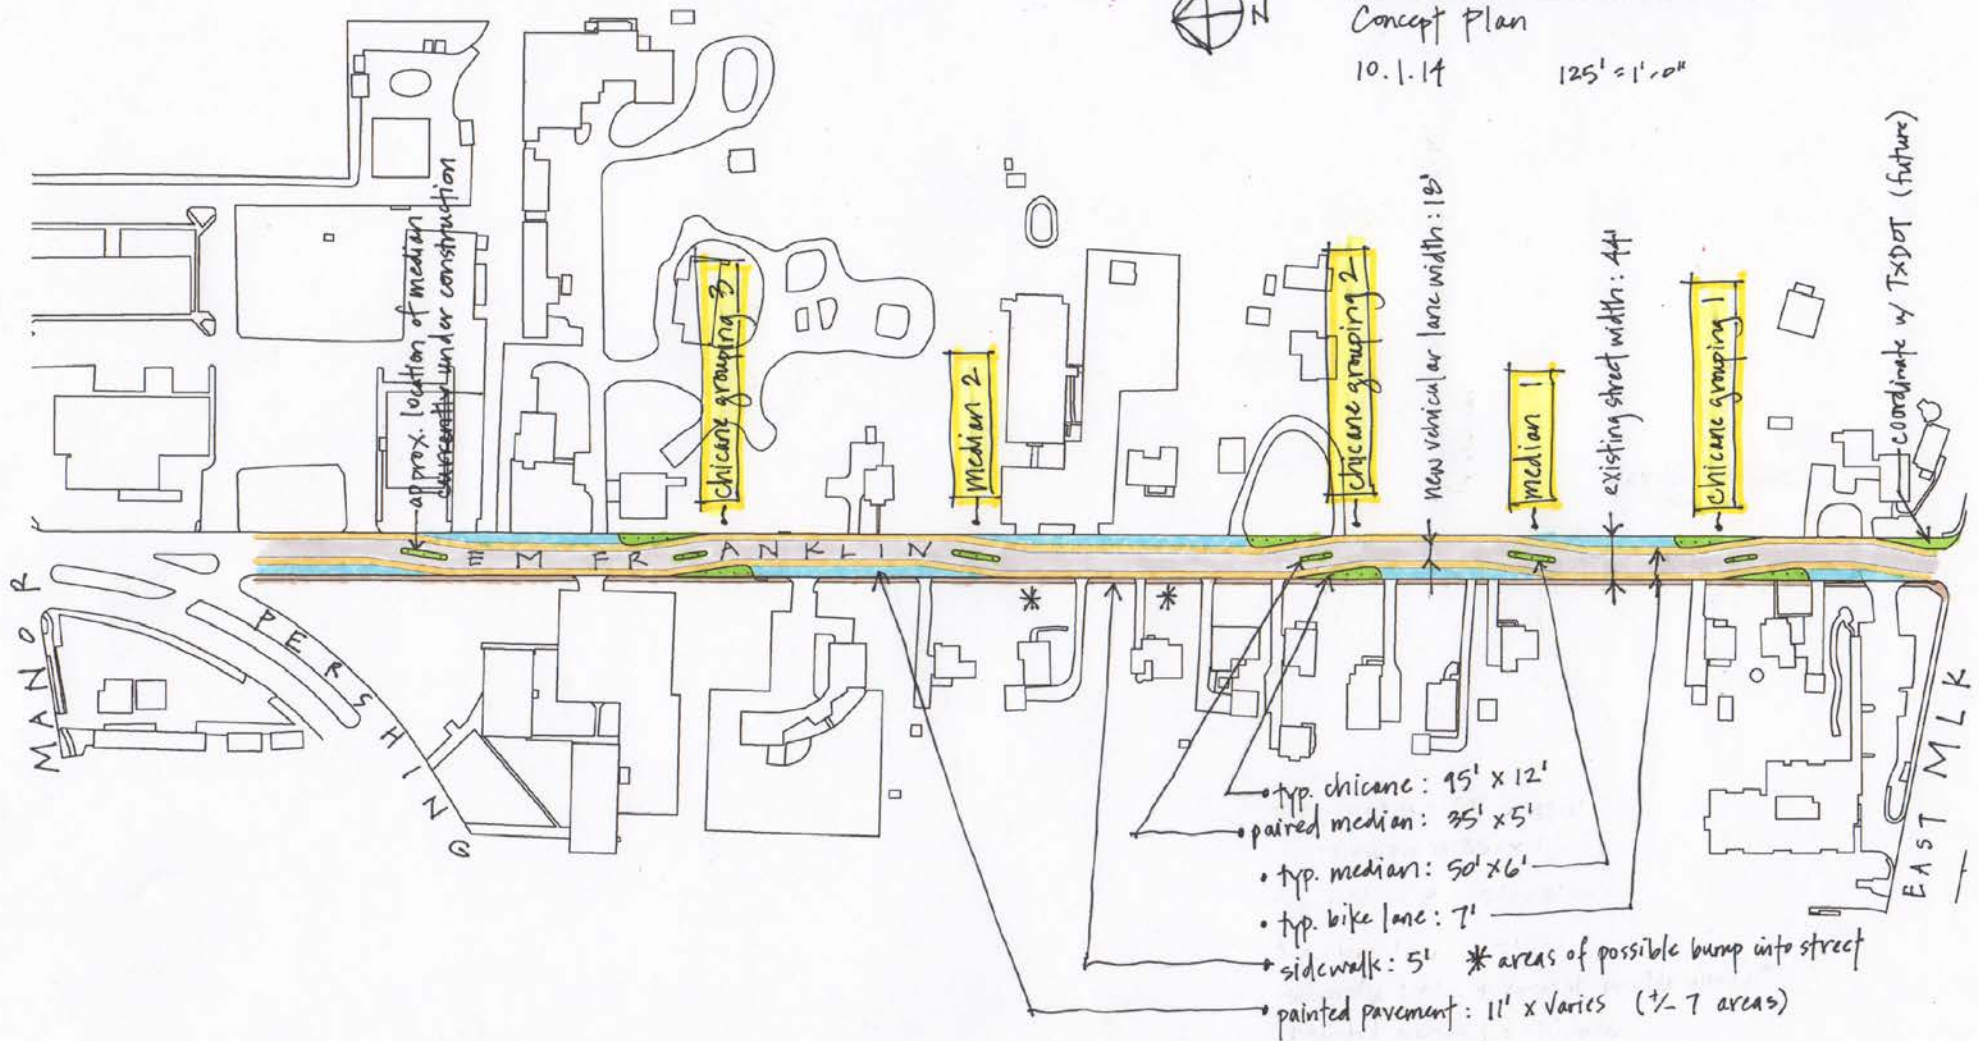 N
Concept Plan
10.1.14 125' = 1'-0"
approx. location of median
currently under construction
chicane grouping 3
median 2
chicane grouping 2
new vehicular lane width: 18'
median 1
existing street width: 44'
chicane grouping 1
coordinate w/ TXDOT (future)
E M FRANKLIN
MANOR
PERSHING
EAST MLK
* *
• typ. chicane: 95' x 12'
• paired median: 35' x 5'
• typ. median: 50' x 6'
• typ. bike lane: 7'
• sidewalk: 5' * areas of possible bump into street
• painted pavement: 11' x varies (+/- 7 areas)